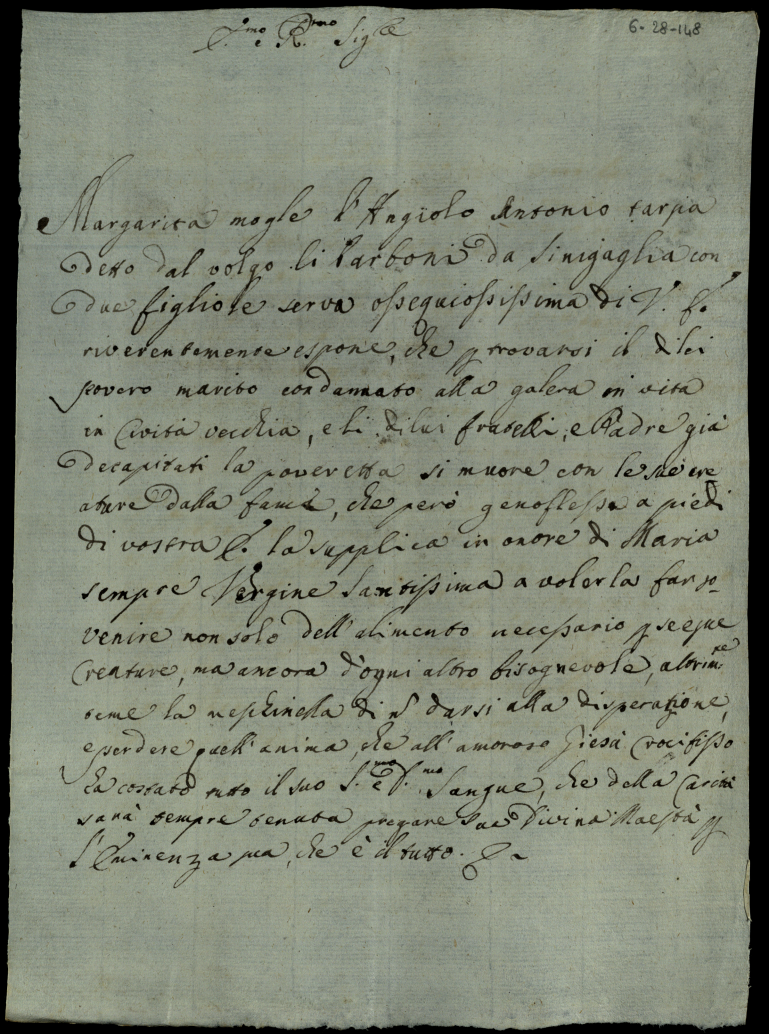 6-28-148
E.mo e R.mo Sig.re
Margarita mogle d'Angiolo Antonio tarsia
detto dal volgo li Carboni da Sinigaglia con
due figliole serva ossequiosissima di V. E.
riverentemente espone, che p trovarsi il di lei
povero marito condannato alla galera in vita
in Civita vecchia, e li di lui fratelli, e Padre già
decapitati la poveretta si muore con le sue cre
ature dalla fame, che però genoflessa a piedi
di vostra E. la supplica in onore di Maria
sempre Vergine Santissima a volerla far so-
venire non solo dell'alimento necessario p se e sue
Creature, ma ancora d'ogni altro bisognevole, altrim.te
teme la meschinella di n darsi alla disperazione,
e perdere quell'anima, che all'amoroso Giesù Crocifisso
ha costato tutto il suo S.mo e S.mo Sangue, che della Carità
sarà sempre tenuta pregare Sua Divina Maestà p
l'Eminenza sua, che è il tutto.